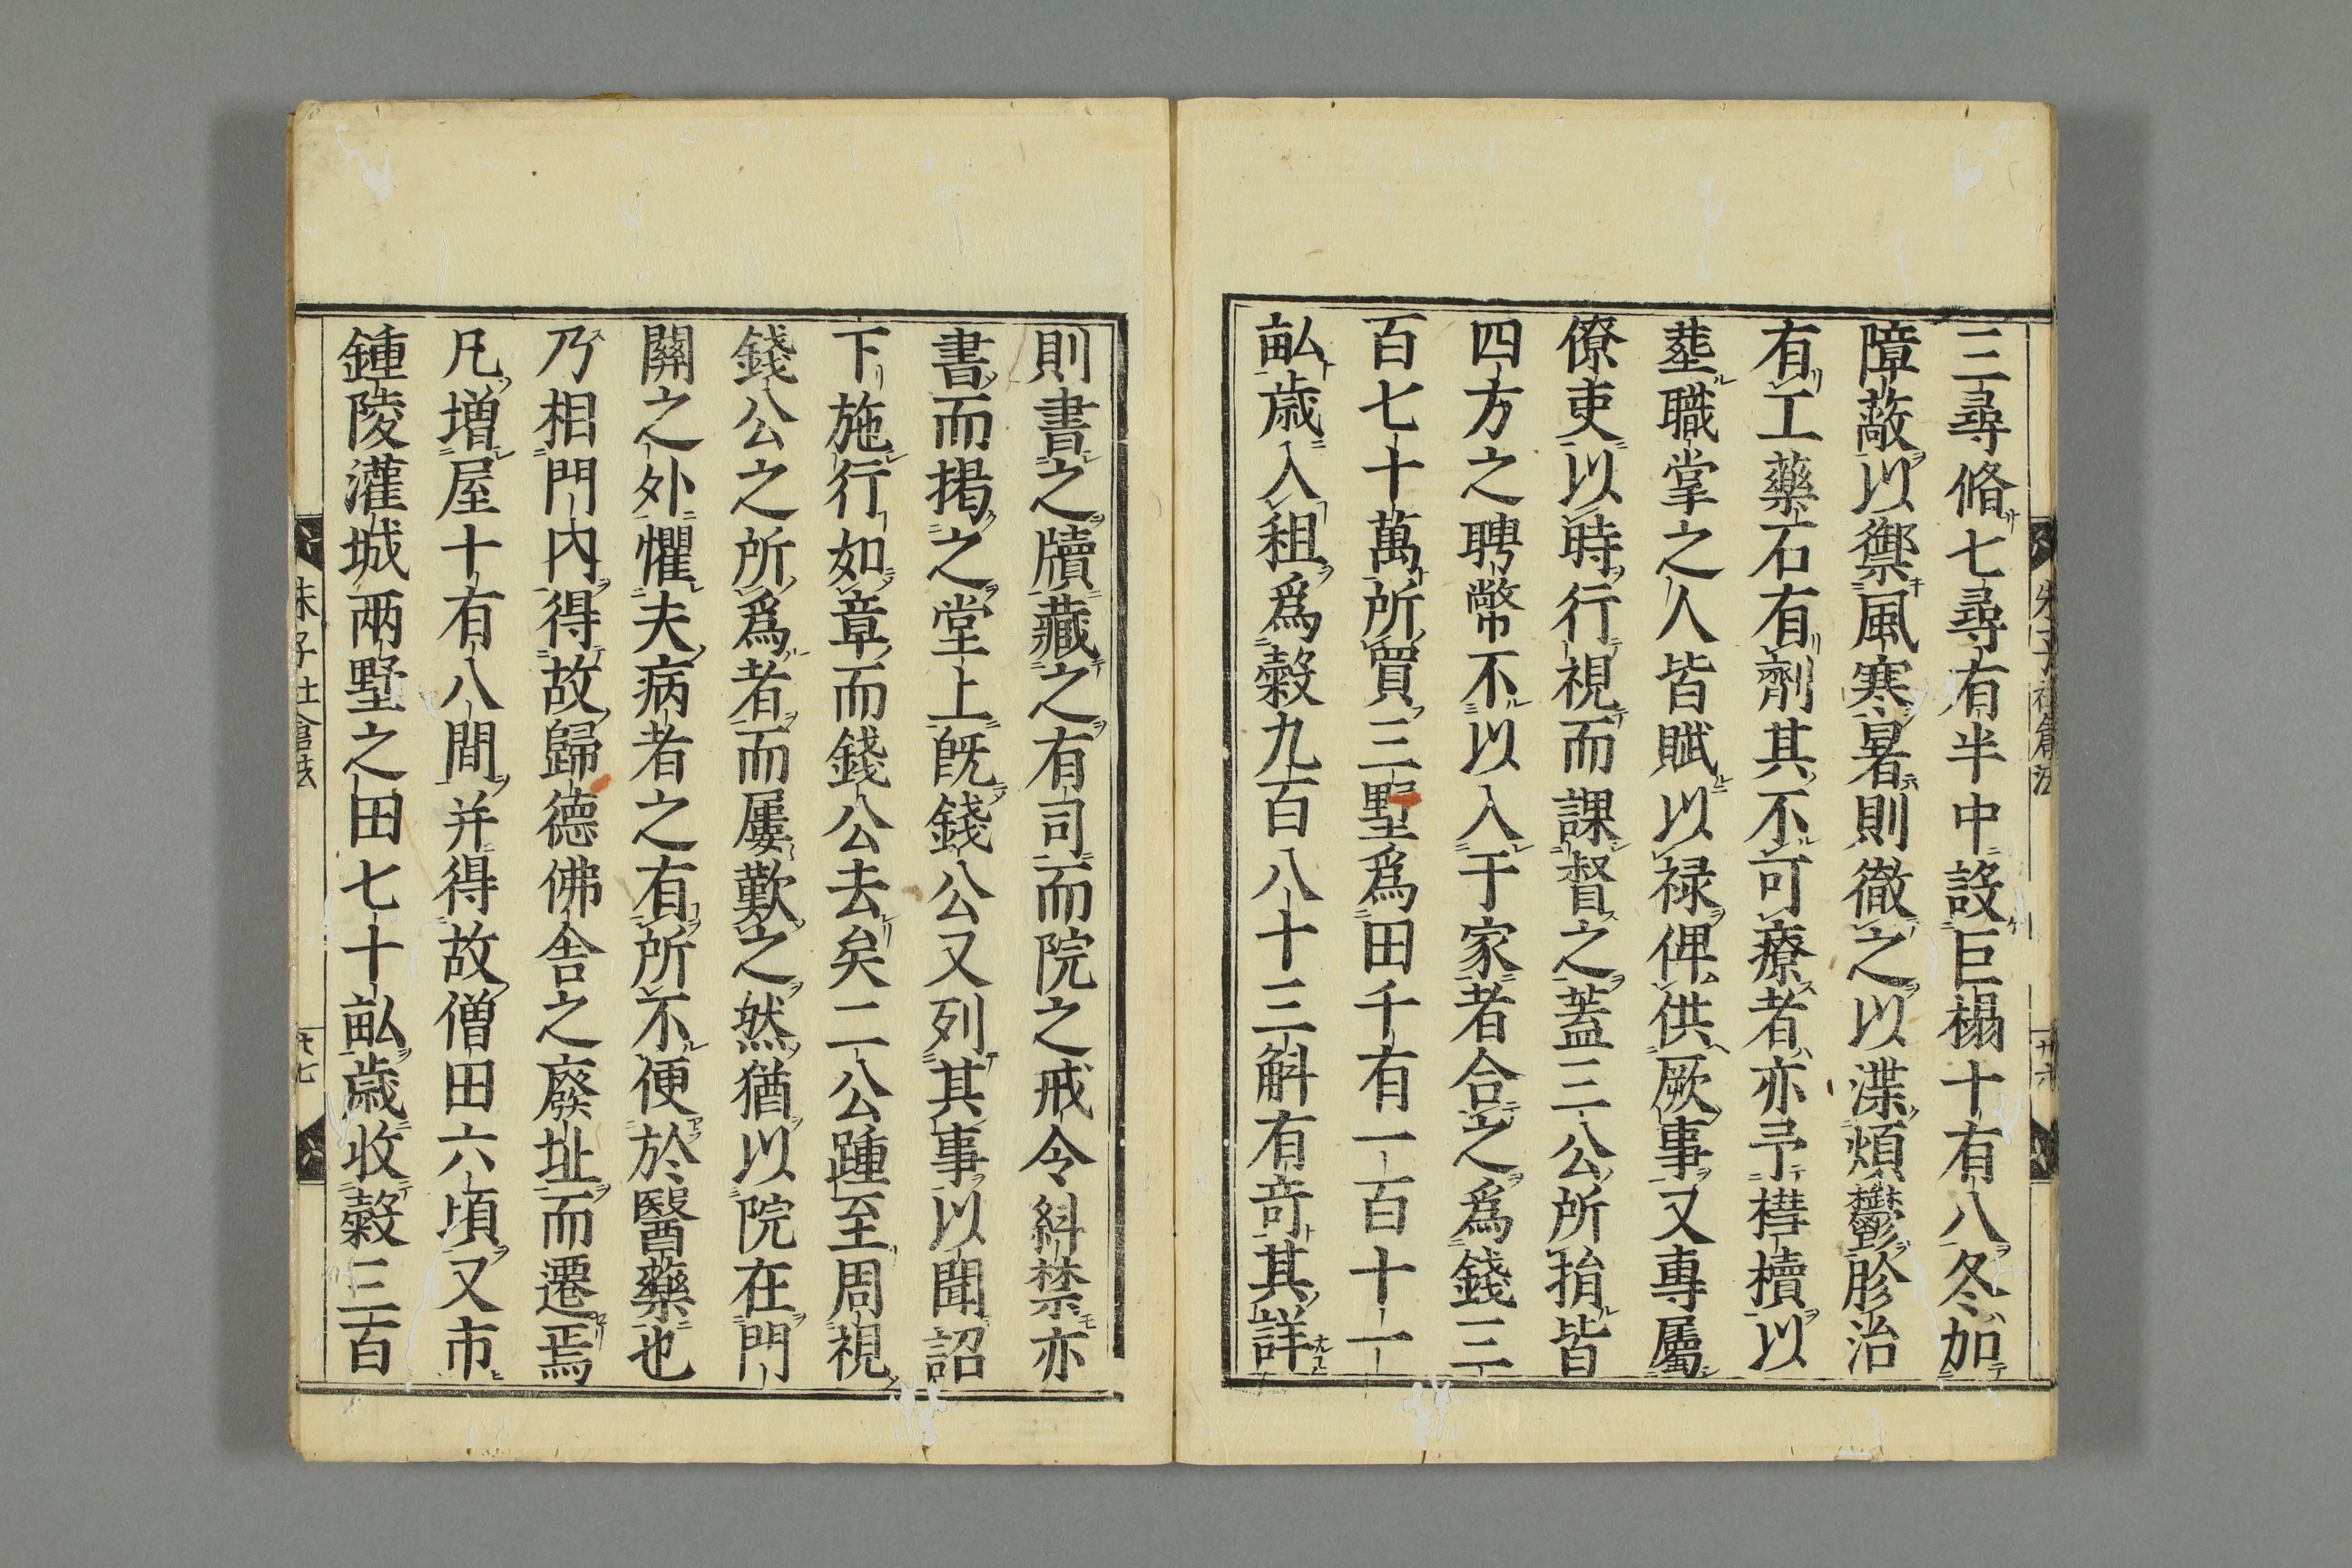 三尋脩七尋有半中設巨榻十有八冬加
障蔽以禦風寒暑則徹之以渫煩鬱胗治
有工藥石有劑其不可療者亦予槥櫝以
塟職掌之人皆賦以禄俾供厥事又專屬
僚吏以時行視而課督之蓋三公所捐皆
四方之聘幣不以入于家者合之爲錢三
百七十萬所買三墅爲田千有一百十一
畝歳入租爲穀九百八十三斛有竒其詳
則書之牘藏之有司而院之戒令糾禁亦
書而掲之堂上既錢公又列其事以聞詔
下施行如章而錢公去矣二公踵至周視
錢公之所爲者而屢歎之然猶以院在門
關之外懼夫病者之有所不便於醫藥也
乃相門内得故歸德佛舎之廢址而遷焉
凡増屋十有八間并得故僧田六頃又市
鍾陵灌城兩墅之田七十畝歳收穀三百
朱子社倉法